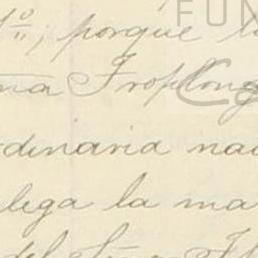 1º; porque l
ma Troplong
rdinaria na
lega la ma
del